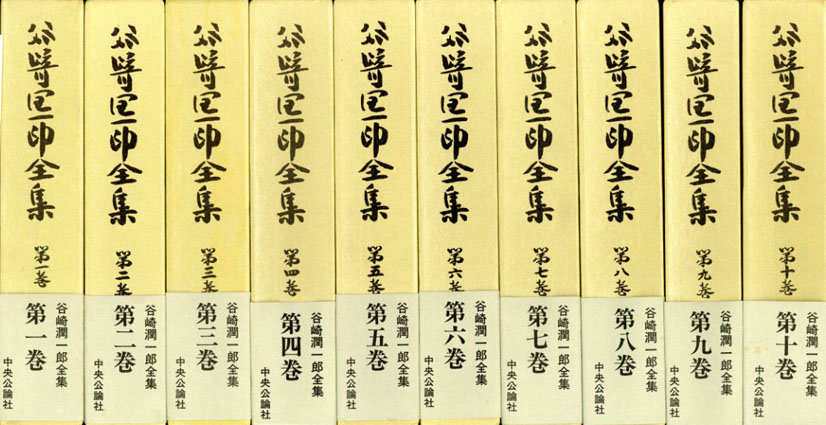 谷崎潤一郎全集
第一巻
谷崎潤一郎全集
第一巻
中央公論社
谷崎潤一郎全集
第二巻
谷崎潤一郎全集
第二巻
中央公論社
谷崎潤一郎全集
第三巻
谷崎潤一郎全集
第三巻
中央公論社
谷崎潤一郎全集
第四巻
谷崎潤一郎全集
第四巻
中央公論社
谷崎潤一郎全集
第五巻
谷崎潤一郎全集
第五巻
中央公論社
谷崎潤一郎全集
第六巻
谷崎潤一郎全集
第六巻
中央公論社
谷崎潤一郎全集
第七巻
谷崎潤一郎全集
第七巻
中央公論社
谷崎潤一郎全集
第八巻
谷崎潤一郎全集
第八巻
中央公論社
谷崎潤一郎全集
第九巻
谷崎潤一郎全集
第九巻
中央公論社
谷崎潤一郎全集
第十巻
谷崎潤一郎全集
第十巻
中央公論社